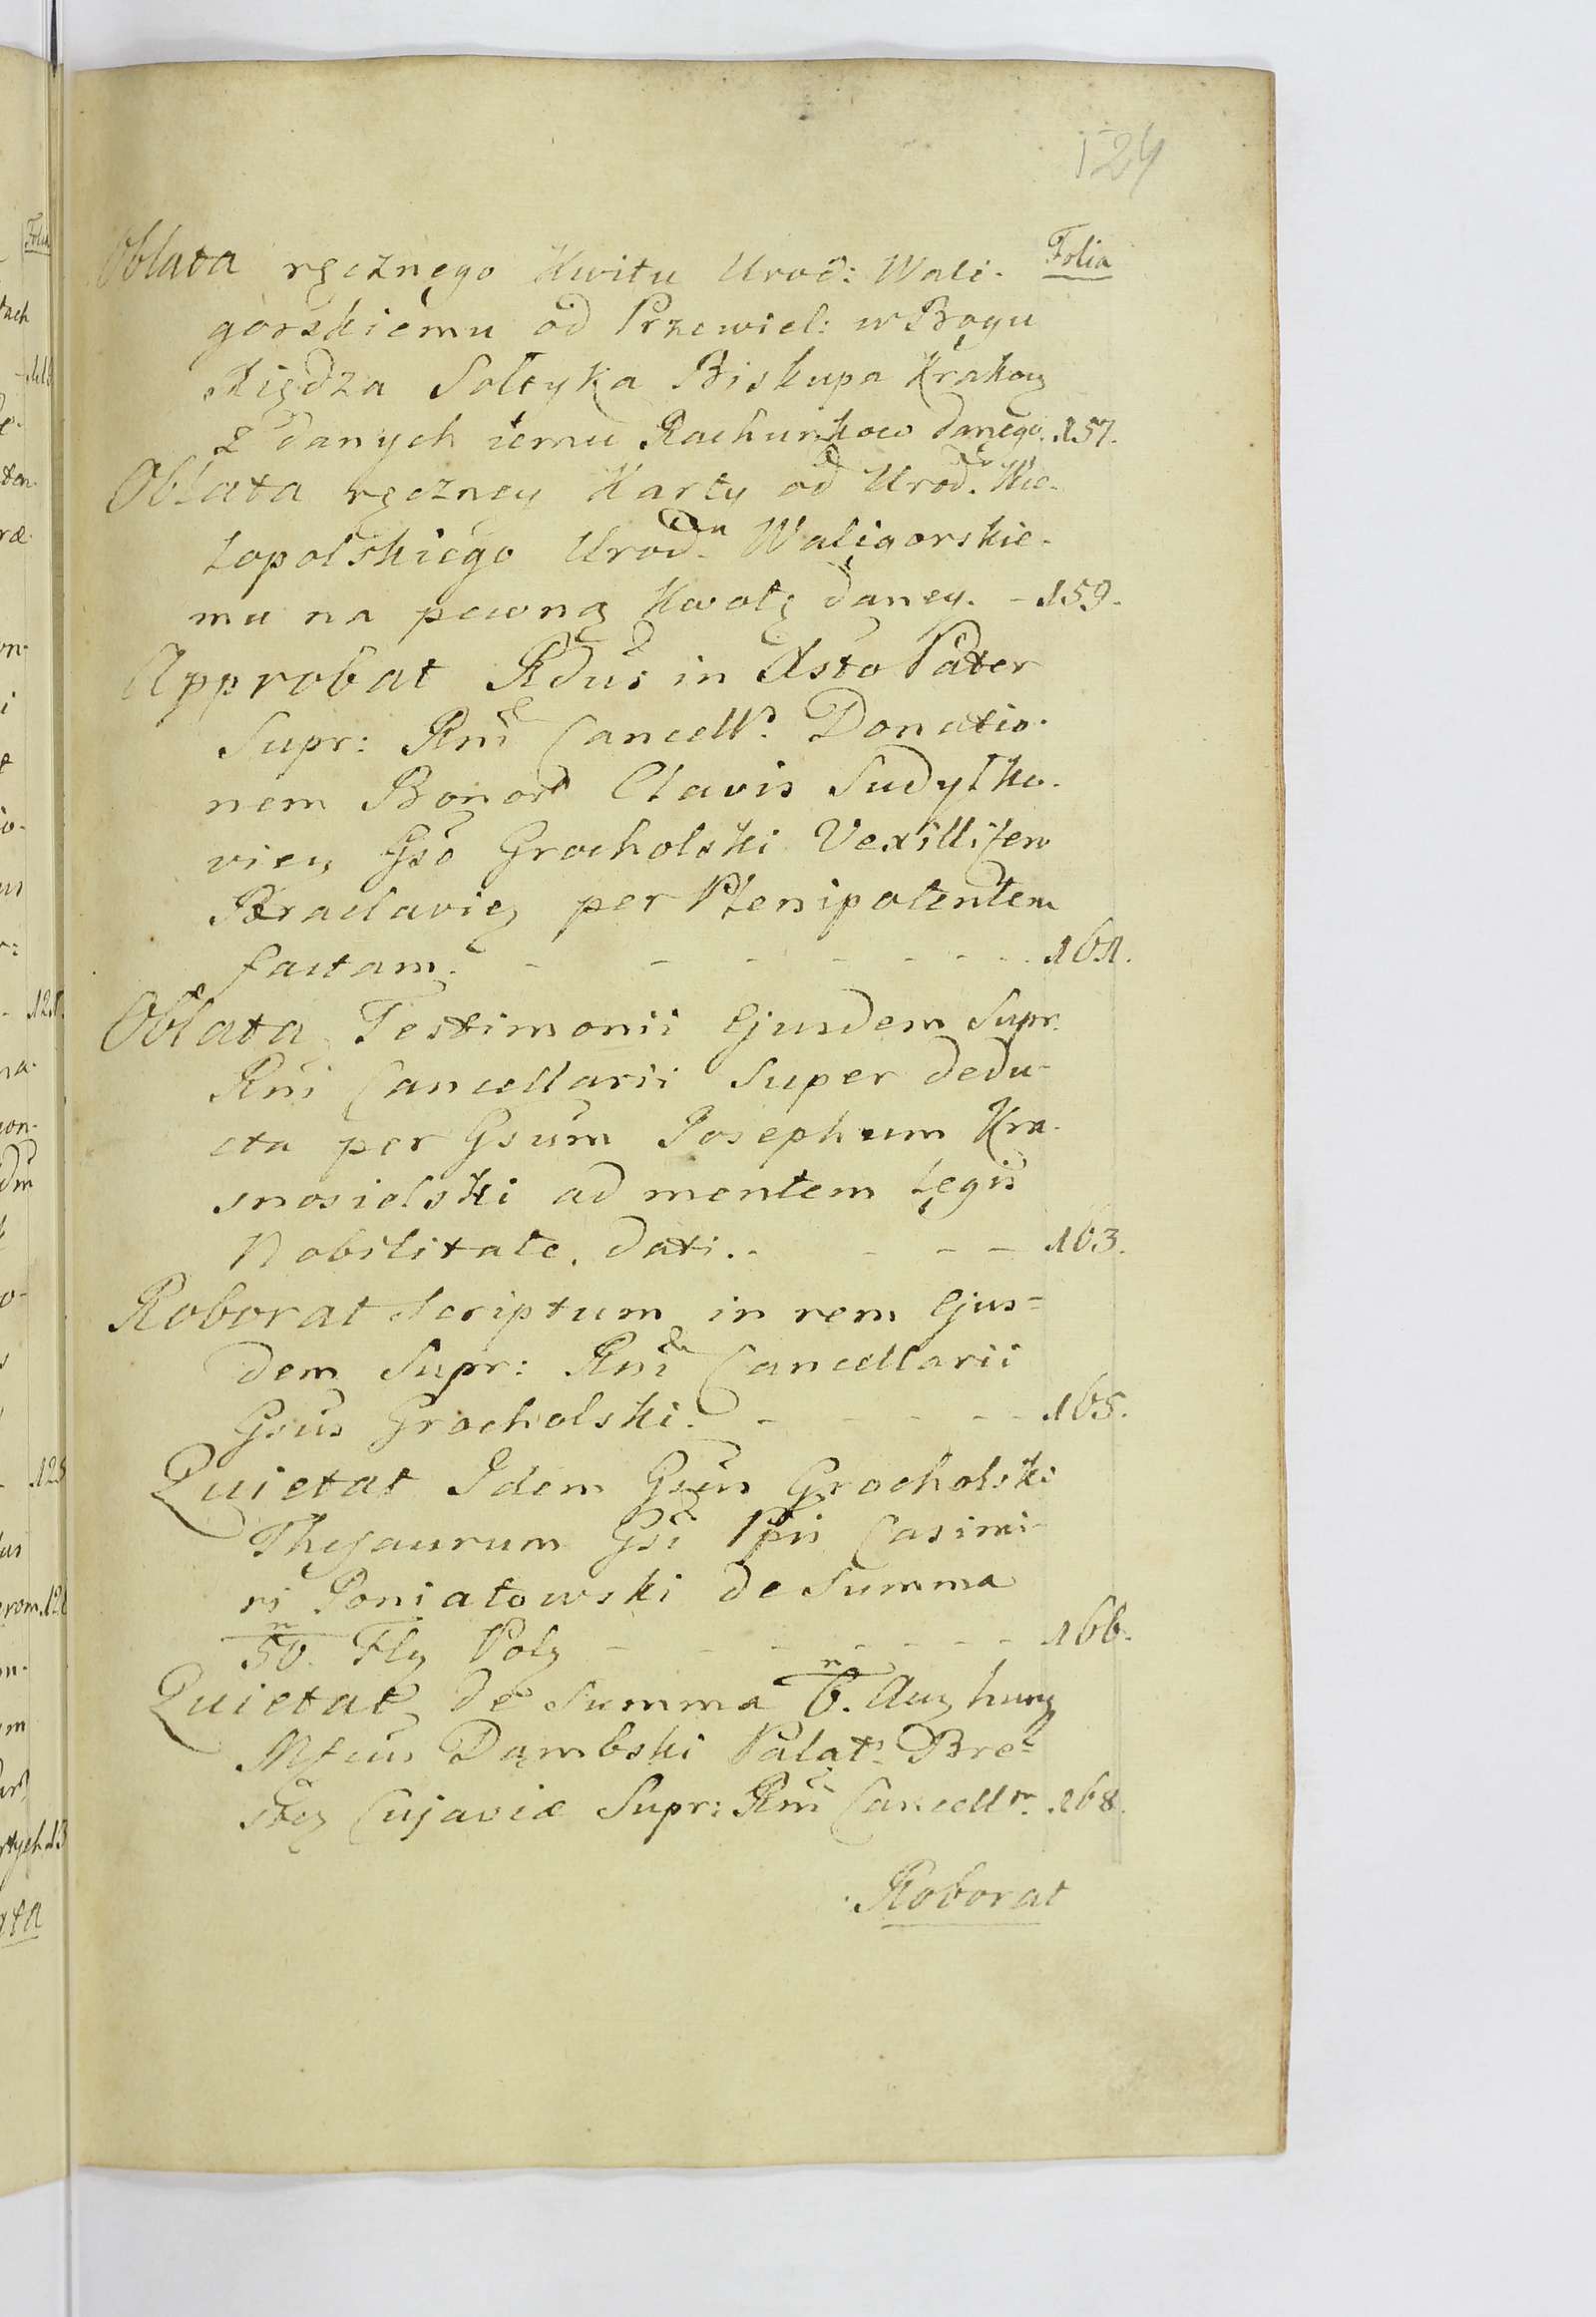 124
Folia
Oblata ręcznego Kwitu Urod: Wali-
gorskiemu od Przewiel: w Bogu
Xiędza Sołtyka Biskupa Krakow
z danych iemu Rachunkow danego. 157.
Oblata ręczney Karty od Urod. Wie-
lopolskiego Urod. Waligorskie-
mu na pewną Kwotę daney. - 159.
Approbat Rdus in Xsto Pater
Supr: Rni Cancell. Donatio-
nem Bonor Clavis Sudyłko-
vien Gso Grocholski Vexillifero
Braclavien per Plenipotentem
factam. - - - - - - 161.
Oblata Testimonii Ejusdem Supr.
Rni Cancellarii super dedu-
cta per Gsum Josephum Kra-
snosielski ad mentem Legis
Nobilitate. dati. - - - - 163.
Roborat Scriptum in rem Ejus=
dem Supr: Rni Cancellarii
Gsus Grocholski. - - - - - 165.
Quietat Idem Gsus Grocholski
Thesaurum Gsi Ppis Casimi-
ri Poniatowski de Summa
50. Fly Poly - - - - - - 166.
Quietat de Summa 6. Aur hung
Mfcus Dąmbski Palat. Bre-
sten Cujaviæ Supr: Rni Cancellr. 168.
Roborat